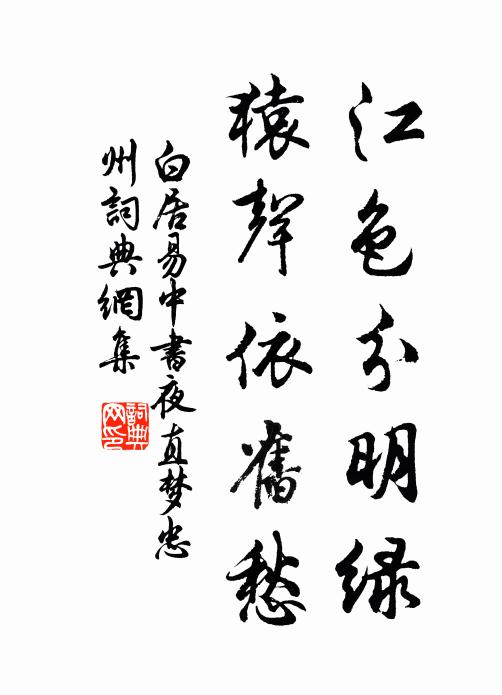 江色分明绿
猿聲依舊愁
白居易中書夜直梦忠
州詞典網集
詞典
网印